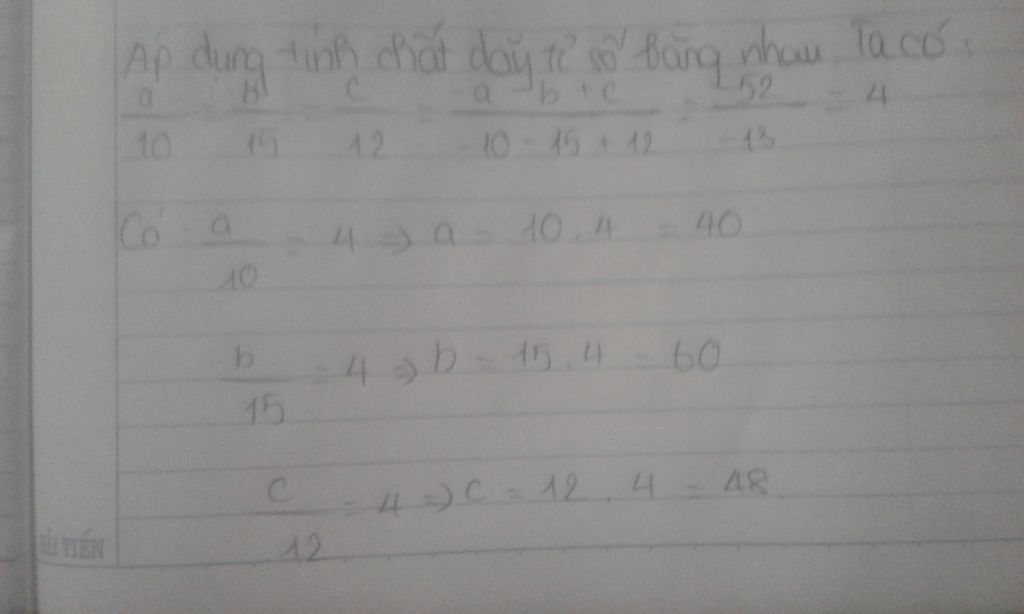 Áp dụng tính chất dãy tỉ số bằng nhau. Ta có:
a/10 = b/15 = c/12 = -a - b + c/-10 - 15 + 12 = -52/-13 = 4
Có: a/10 = 4 => a = 10.4 = 40
b/15 = 4 => b = 15.4 = 60
c/12 = 4 => c = 12.4 = 48.
HẢI TIẾN